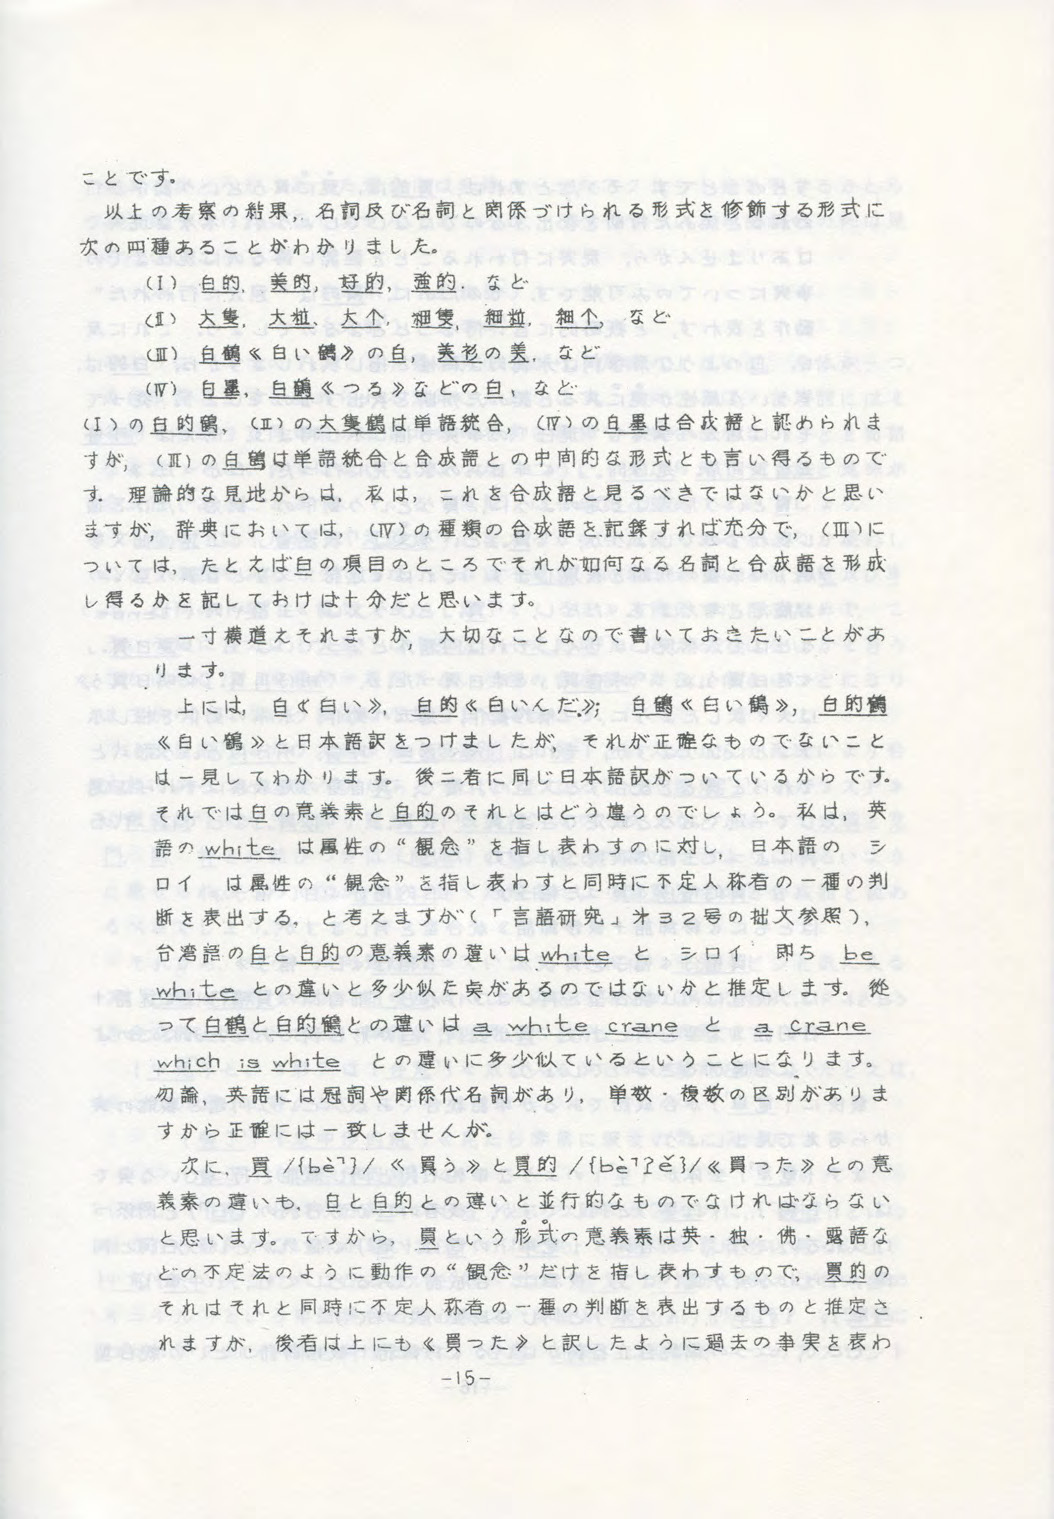 ことです。
以上の考察の結果，名詞及び名詞と関係づけられる形式を修飾する形式に
次の四種あることがわかりました。
(Ⅰ) 白的，美的，好的，強的．など
(Ⅱ) 大隻，大粒，大个，細隻，細粒，細个，など
(Ⅲ) 白鶴≪白い鶴≫の白，美衫の美，など
(Ⅳ) 白墨，白鶴≪つる≫などの白，など
(Ⅰ)の白的鶴，(Ⅱ)の大隻鶴は単語統合，(Ⅳ)の白墨は合成語と認められま
すが，(Ⅲ)の白鶴は単語統合と合成語との中間的な形式とも言い得るもので
す．理論的な見地からは，私は，これを合成語と見るべきではないかと思い
ますが，辞典においては，(Ⅳ)の種類の合成語を記録すれば充分で，(Ⅲ)に
ついては，たとえば白の項目のところでそれが如何なる名詞と合成語を形成
し得るかを記しておけば十分だと思います。
一寸横道えそれますが，大切なことなので書いておきたいことがあ
ります。
上には，白≪白い≫，白的≪白いんだ≫；白鶴≪白い鶴≫，白的鶴
≪白い鶴≫と日本語訳をつけましたが，それが正確なものでないこと
は一見してわかります。後二者に同じ日本語訳がついているからです。
それでは白の意義素と白的のそれとはどう違うのでしょう。私は，英
語の white は属性の“観念”を指し表わすのに対し，日本語の シ
ロイ は属性の“観念”を指し表わすと同時に不定人称者の一種の判
断を表出する，と考えますが(「言語研究」㐧32号の拙文参照)，
台湾語の白と白的の意義素の違いは white と シロイ 即ち be
white との違いと多少似た点があるのではないかと推定します。従
って白鶴と白的鶴との違いは a white crane と a crane
which is white との違いに多少似ているということになります。
勿論，英語には冠詞や関係代名詞があり，単数・複数の区別がありま
すから正確には一致しませんが。
次に，買 /{bè˥}/≪買う≫と買的 /{bè˥ʔě}/≪買った≫との意
義素の違いも，白と白的との違いと並行的なものでなければならない
と思います。ですから，買という形式の意義素は英・独・佛・露語な
どの不定法のように動作の“観念”だけを指し表わすもので，買的の
それはそれと同時に不定人称者の一種の判断を表出するものと推定さ
れますが，後者は上にも≪買った≫と訳したように過去の事実を表わ
-15-